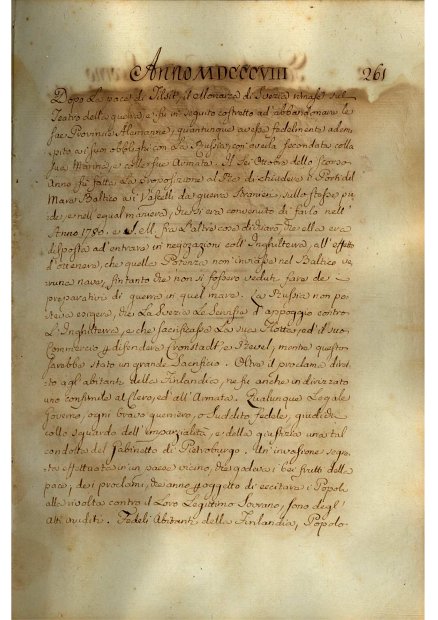 Anno MDCCCVIII 261
Dopo la pace di Tilsit, il Monarca di Svezia rimase sul
Teatro della guerra, e fu in seguito costretto ad abbandonare le
sue Provincie Alemagne, quantunque avesse fedelmente adem-
pito a i suoi obblighi con la Russia, con averla secondata colla
sua Marina, e colle sue Armate. Il Sei Ottobre dello scorso
Anno fu fatta la proposizione al Re di chiudere i Porti del
Mare Baltico a i Vascelli da guerra Stranieri, sullo stesso pie-
de, e nell'egual maniera, che si era convenuto di farlo nell'
Anno 1780. e S. M. fra l'altre cose dichiarò, che ella era
disposta ad entrare in negoziazioni coll'Inghilterra, all'effetto
d'ottenere, che quella Potenza non inviasse nel Baltico ve-
runa nave, fintanto che non si fossero veduti fare de'
preparativi di guerra in quel mare. La Russia non po-
teva esigere, che la Svezia le servisse d'appoggio contro
l'Inghilterra, e che sacrificasse la sua Flotta, ed il suo
Commercio p. difendere Cronstadt, e Revel, mentre questo
sarebbe stato un grande Sacrificio. Oltre il proclama diret-
to agli abitanti della Finlandia, ne fu anche indirizzato
uno consimile al Clero, ed all'Armata. Qualunque Legale
Governo, ogni bravo guerriero, o Suddito fedele, giudichi
collo sguardo dell'imparzialità, e della giustizia una tal
condotta del Gabinetto di Pietroburgo. Un'invasione segre-
ta effettuata in un paese vicino, che godeva i bei frutti della
pace, de i proclami, che anno p. oggetto di eccitare i Popoli
alla rivolta contro il loro Legittimo Sovrano, sono degl'
atti inuditi. Fedeli Abitanti della Finlandia, Popolo